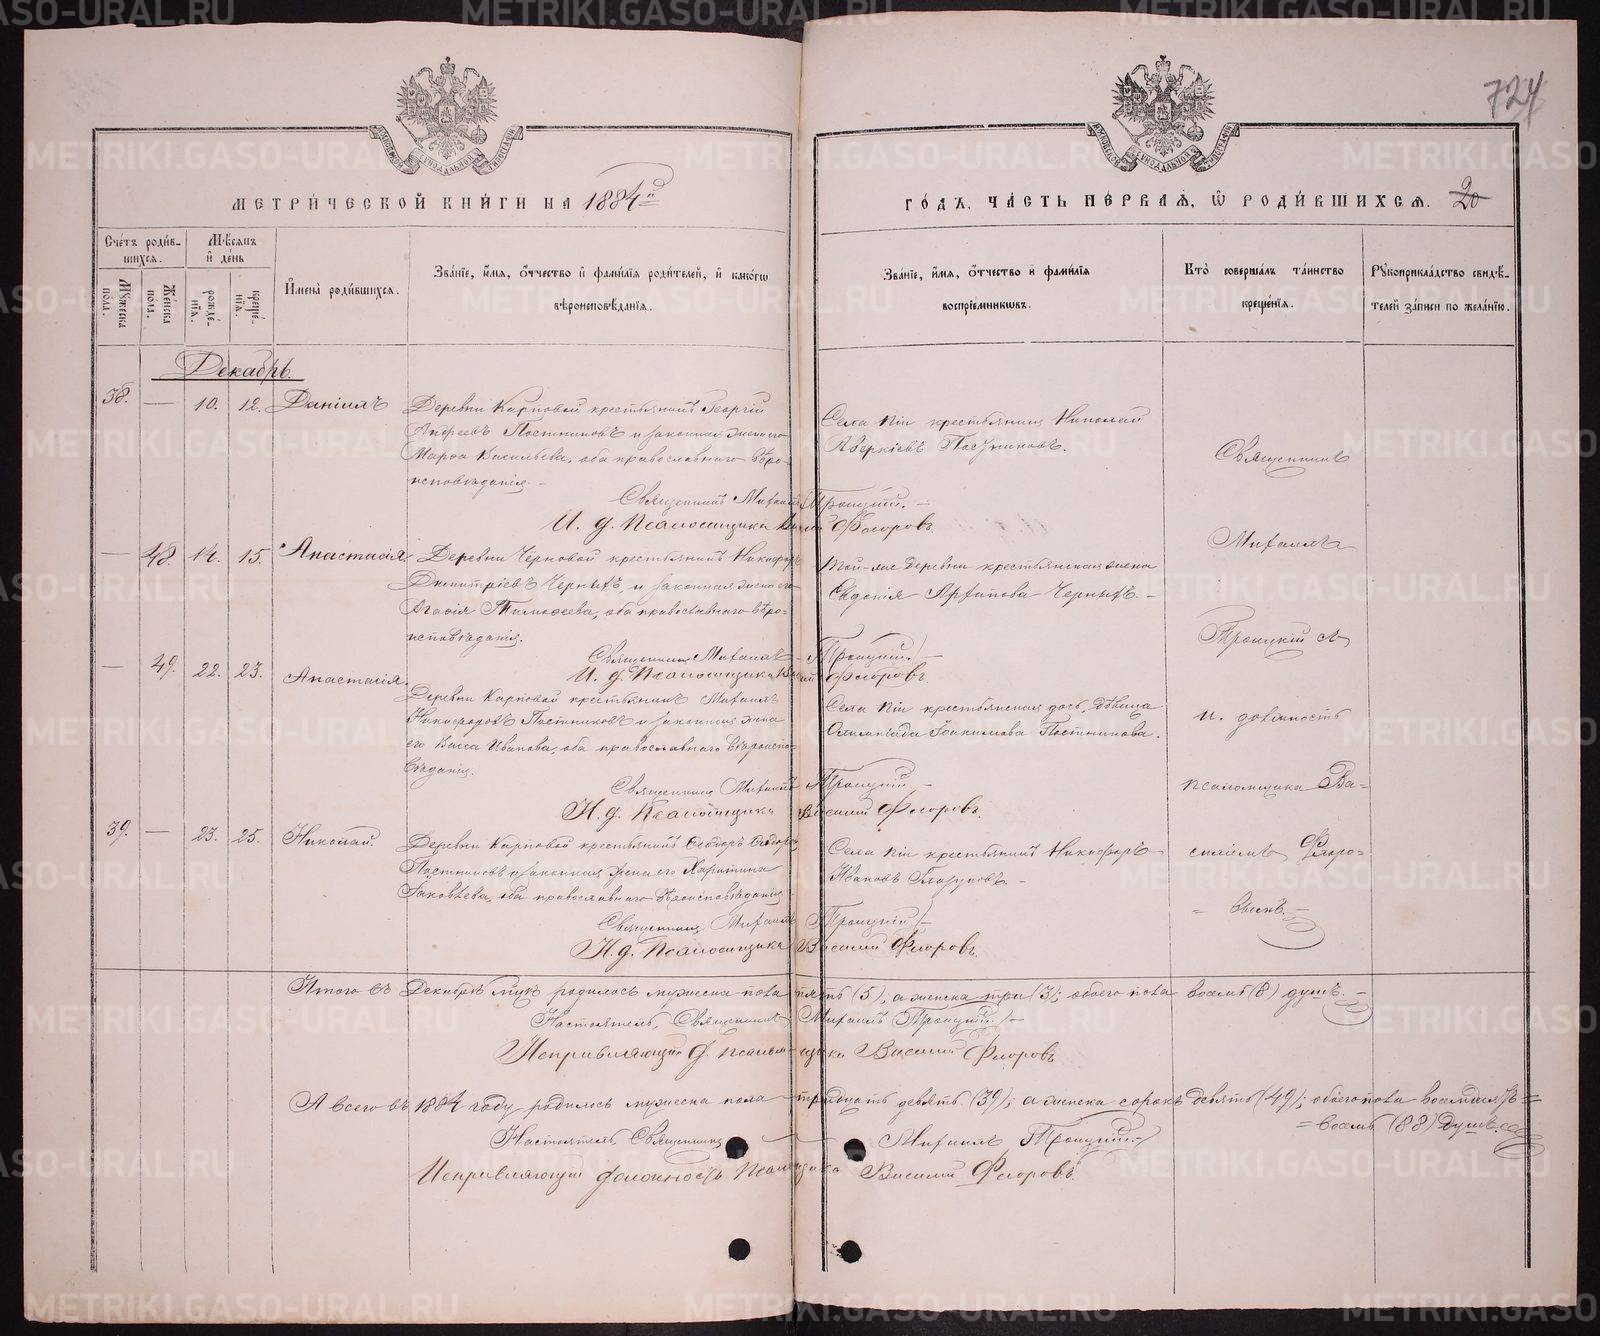 724
МЕТРИЧЕСКОЙ КНИГИ НА 1884й ГОДЪ, ЧАСТЬ ПЕРВАЯ, Ѡ РОДИВШИХСЯ. 20
Счетъ родившихся.
Мѣсяцъ и день
Имена родившихся.
Званіе, имя, отчество и фамилія родителей, и какого вѣроисповѣданія.
Званіе, имя, отчество и фамилія воспріемниковъ.
Кто совершалъ таинство крещенія.
Рукоприкладство свидѣтелей записи по желанію.
Мужеска пола.
Женска пола.
рожденія.
крещенія.
Декабрь.
38. — 10. 12. Даніилъ
Деревни Карповой крестьянинъ Георгій
Андреевъ Постниковъ и законная жена его
Марѳа Васильева, оба православнаго вѣро-
исповѣданія. –
Села Піи крестьянинъ Николай
Аверкіевъ
Священникъ Михаилъ Троицкій. –
И. д. Псаломщика Василій Флоровъ.
— 48. 14. 15. Анастасія.
Деревни Черновой крестьянинъ Никифоръ
Димитріевъ Черныхъ, и законная жена его
Агафія Тимофеева, оба православнаго вѣро-
исповѣданія.
Той-же деревни крестьянская жена
Евдокія Архипова Черныхъ. –
Священникъ Михаилъ Троицкій. –
И. д. Псаломщика Василій Флоровъ.
— 49. 22. 23. Анастасія.
Деревни Карповой крестьянинъ Михаилъ
Никифоровъ Постниковъ и законная жена
его Васса Иванова, оба православнаго вѣроиспо-
вѣданія.
Села Піи крестьянская дочь, дѣвица
Олимпіада Іоакимова Постникова.
Священникъ Михаилъ Троицкій –
И. д. Псаломщика Василій Флоровъ.
39. — 23. 25. Николай.
Деревни Карповой крестьянинъ Ѳедоръ Ѳедоровъ
Постниковъ и законная жена его Харитина
Іаковлева, оба православнаго вѣроисповѣданія
Села Піи крестьянинъ Никифоръ
Ивановъ –
Священникъ Михаилъ Троицкій –
И. д. Псаломщика Василій Флоровъ.
Священникъ
Михаилъ
Троицкій съ
и. должность
псаломщика Ва-
силіемъ Флоро-
вымъ. –
Итого въ Декабрѣ м-цѣ родилось мужеска пола пять (5), а женска три (3); обоего пола восемь (8) душъ. –
Настоятель, Священникъ Михаилъ Троицкій –
Исправляющій д. Псаломщика Василій Флоровъ
А всего въ 1884 году родилось мужеска пола тридцать девять (39); а женска сорокъ девять (49); обоего пола восемьдесятъ =
= восемь (88) душъ.
Настоятель, Священникъ — Михаилъ Троицкій. –
Исправляющій должность Псаломщика Василій Флоровъ.
METRIKI.GASO-URAL.RU